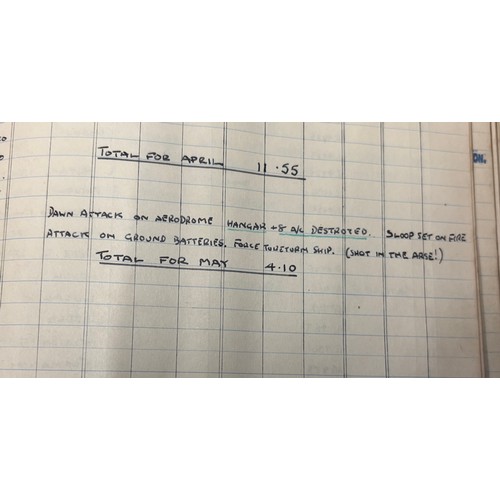 TOTAL FOR APRIL 11.55
DAWN ATTACK ON AERODROME HANGAR +8 A/C DESTROYED. SLOOP SET ON FIRE
ATTACK ON GROUND BATTERIES. FORCE TO RETURN SHIP. (SHOT IN THE ARSE!)
TOTAL FOR MAY 4.10